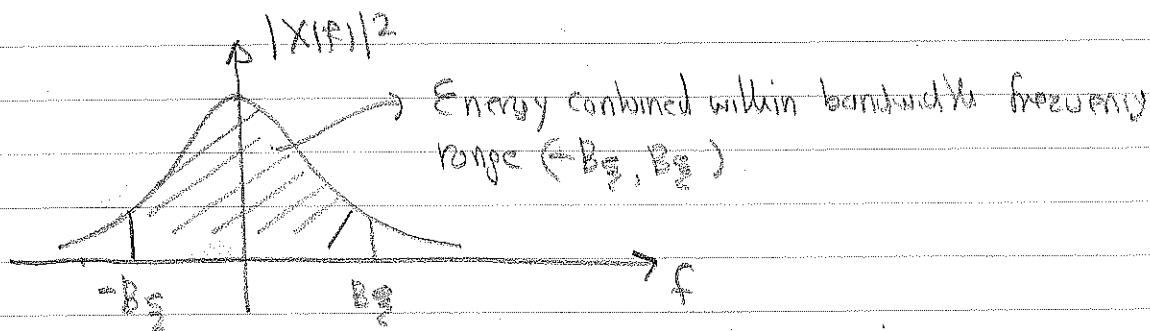 |X(f)|²
Energy contained within bandwidth frequency
range (-Bξ, Bξ)
-Bξ Bξ f